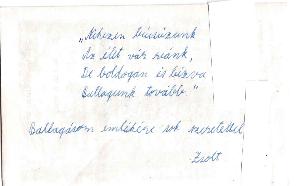 „Nehezen búcsúzunk
Az élet vár reánk,
De boldogan és bízva
Ballagunk tovább."
Ballagásom emlékére sok szeretettel
Zsolt